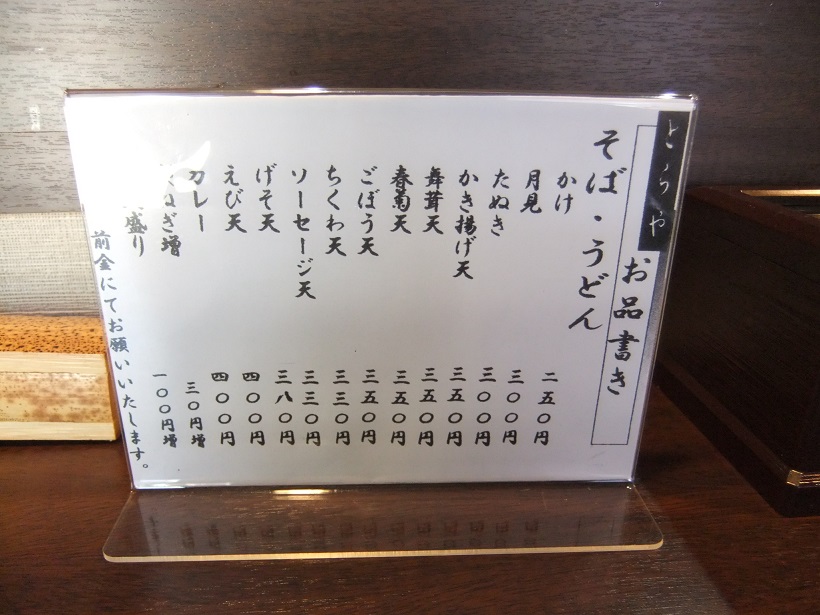 とうや
お品書き
そば・うどん
かけ 二五〇円
月見 三〇〇円
たぬき 三〇〇円
かき揚げ天 三五〇円
舞茸天 三五〇円
春菊天 三五〇円
ごぼう天 三五〇円
ちくわ天 三三〇円
ソーセージ天 三三〇円
げそ天 三八〇円
えび天 四〇〇円
カレー 四〇〇円
ねぎ増 三〇円増
盛り 一〇〇円増
前金にてお願いいたします。